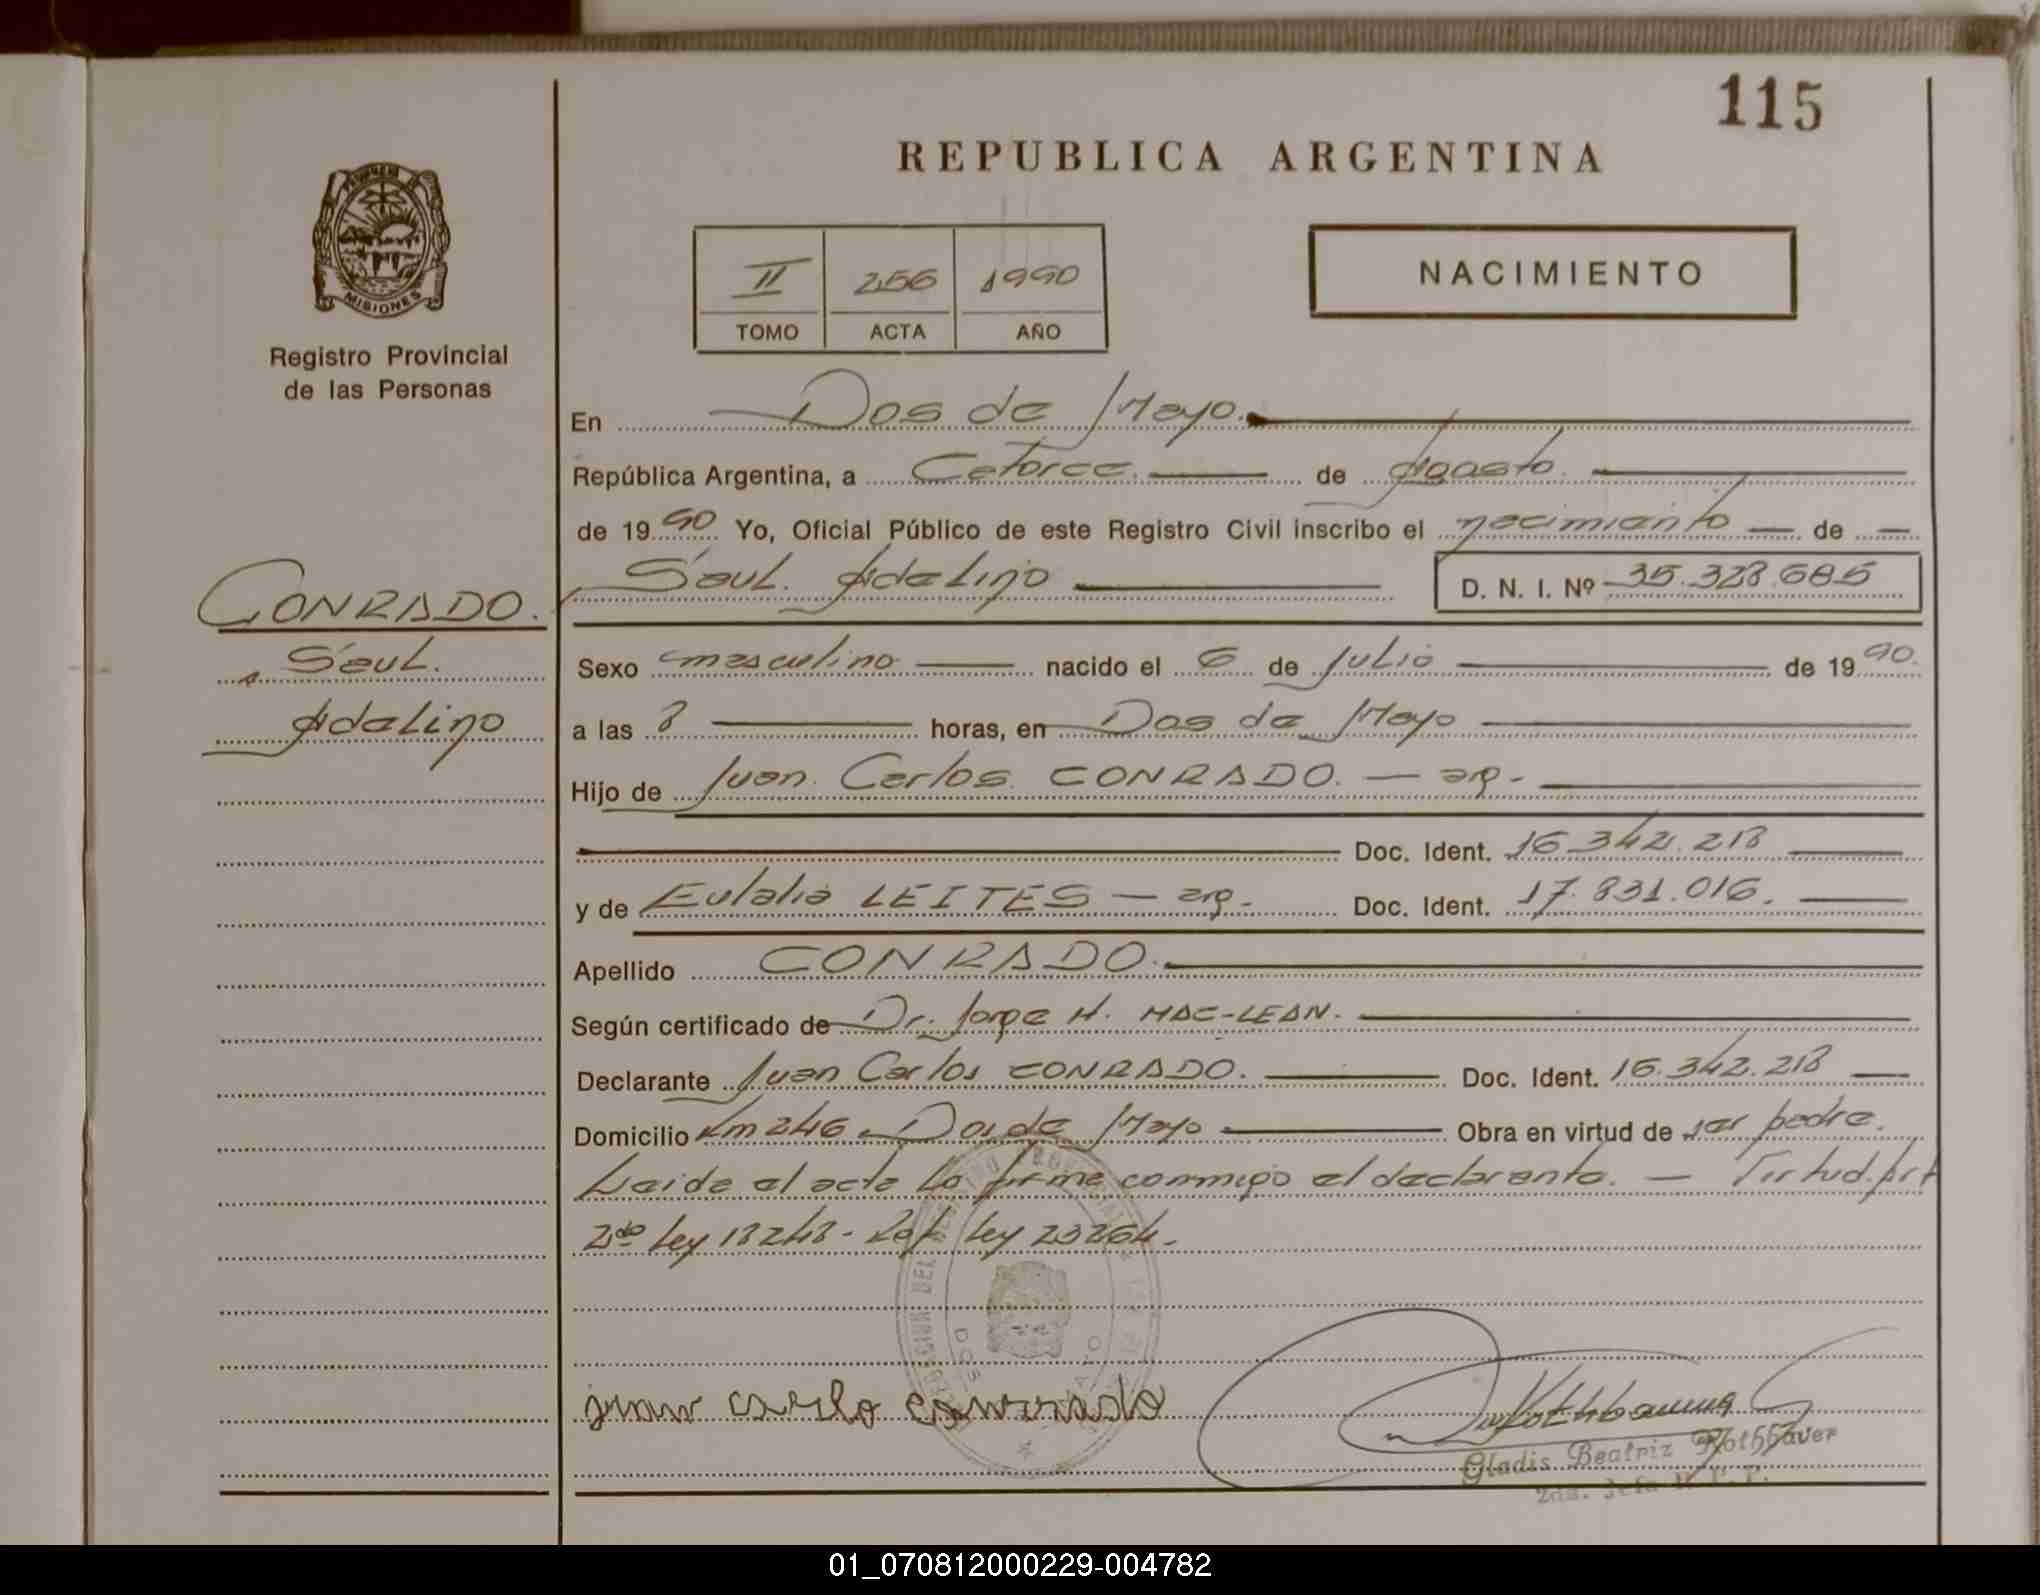 115
REPUBLICA ARGENTINA
PROVINCIA DE
MISIONES
Registro Provincial
de las Personas
II 256 1990
TOMO ACTA AÑO
NACIMIENTO
En Dos de Mayo.
República Argentina, a Catorce. de Agosto.
de 1990 Yo, Oficial Público de este Registro Civil inscribo el nacimiento de
Saul. Adelino
D. N. I. Nº 35.328.685
CONRADO.
Saul.
Adelino
Sexo masculino nacido el 6 de Julio de 1990.
a las 8 horas, en Dos de Mayo
Hijo de Juan Carlos CONRADO. — arg.
Doc. Ident. 16.342.218
y de Eulalia LEITES — arg. Doc. Ident. 17.831.016.
Apellido CONRADO.
Según certificado de Dr. Jorge H. MAC-LEAN.
Declarante Juan Carlos CONRADO. Doc. Ident. 16.342.218
Domicilio Km 246 Dos de Mayo Obra en virtud de ser padre.
Leida el acta la firma conmigo el declarante. — Virtud. Art
2do Ley 18248 - Ley 23264.
juan carlo conrrado
Gladis Beatriz Rothbauer
2da. Jefa R. P. P.
01_070812000229-004782